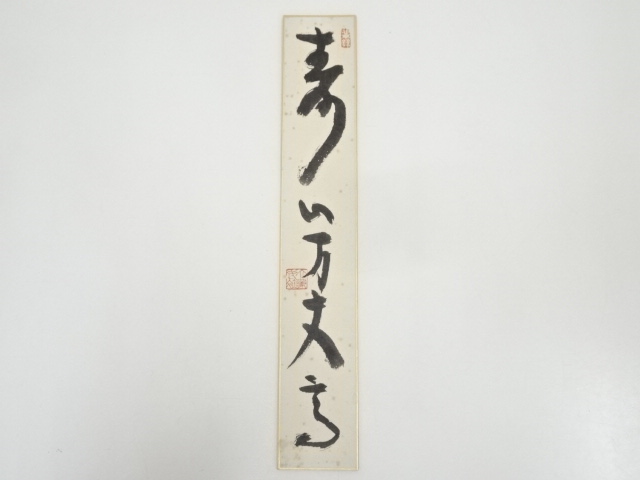 寿山万丈高